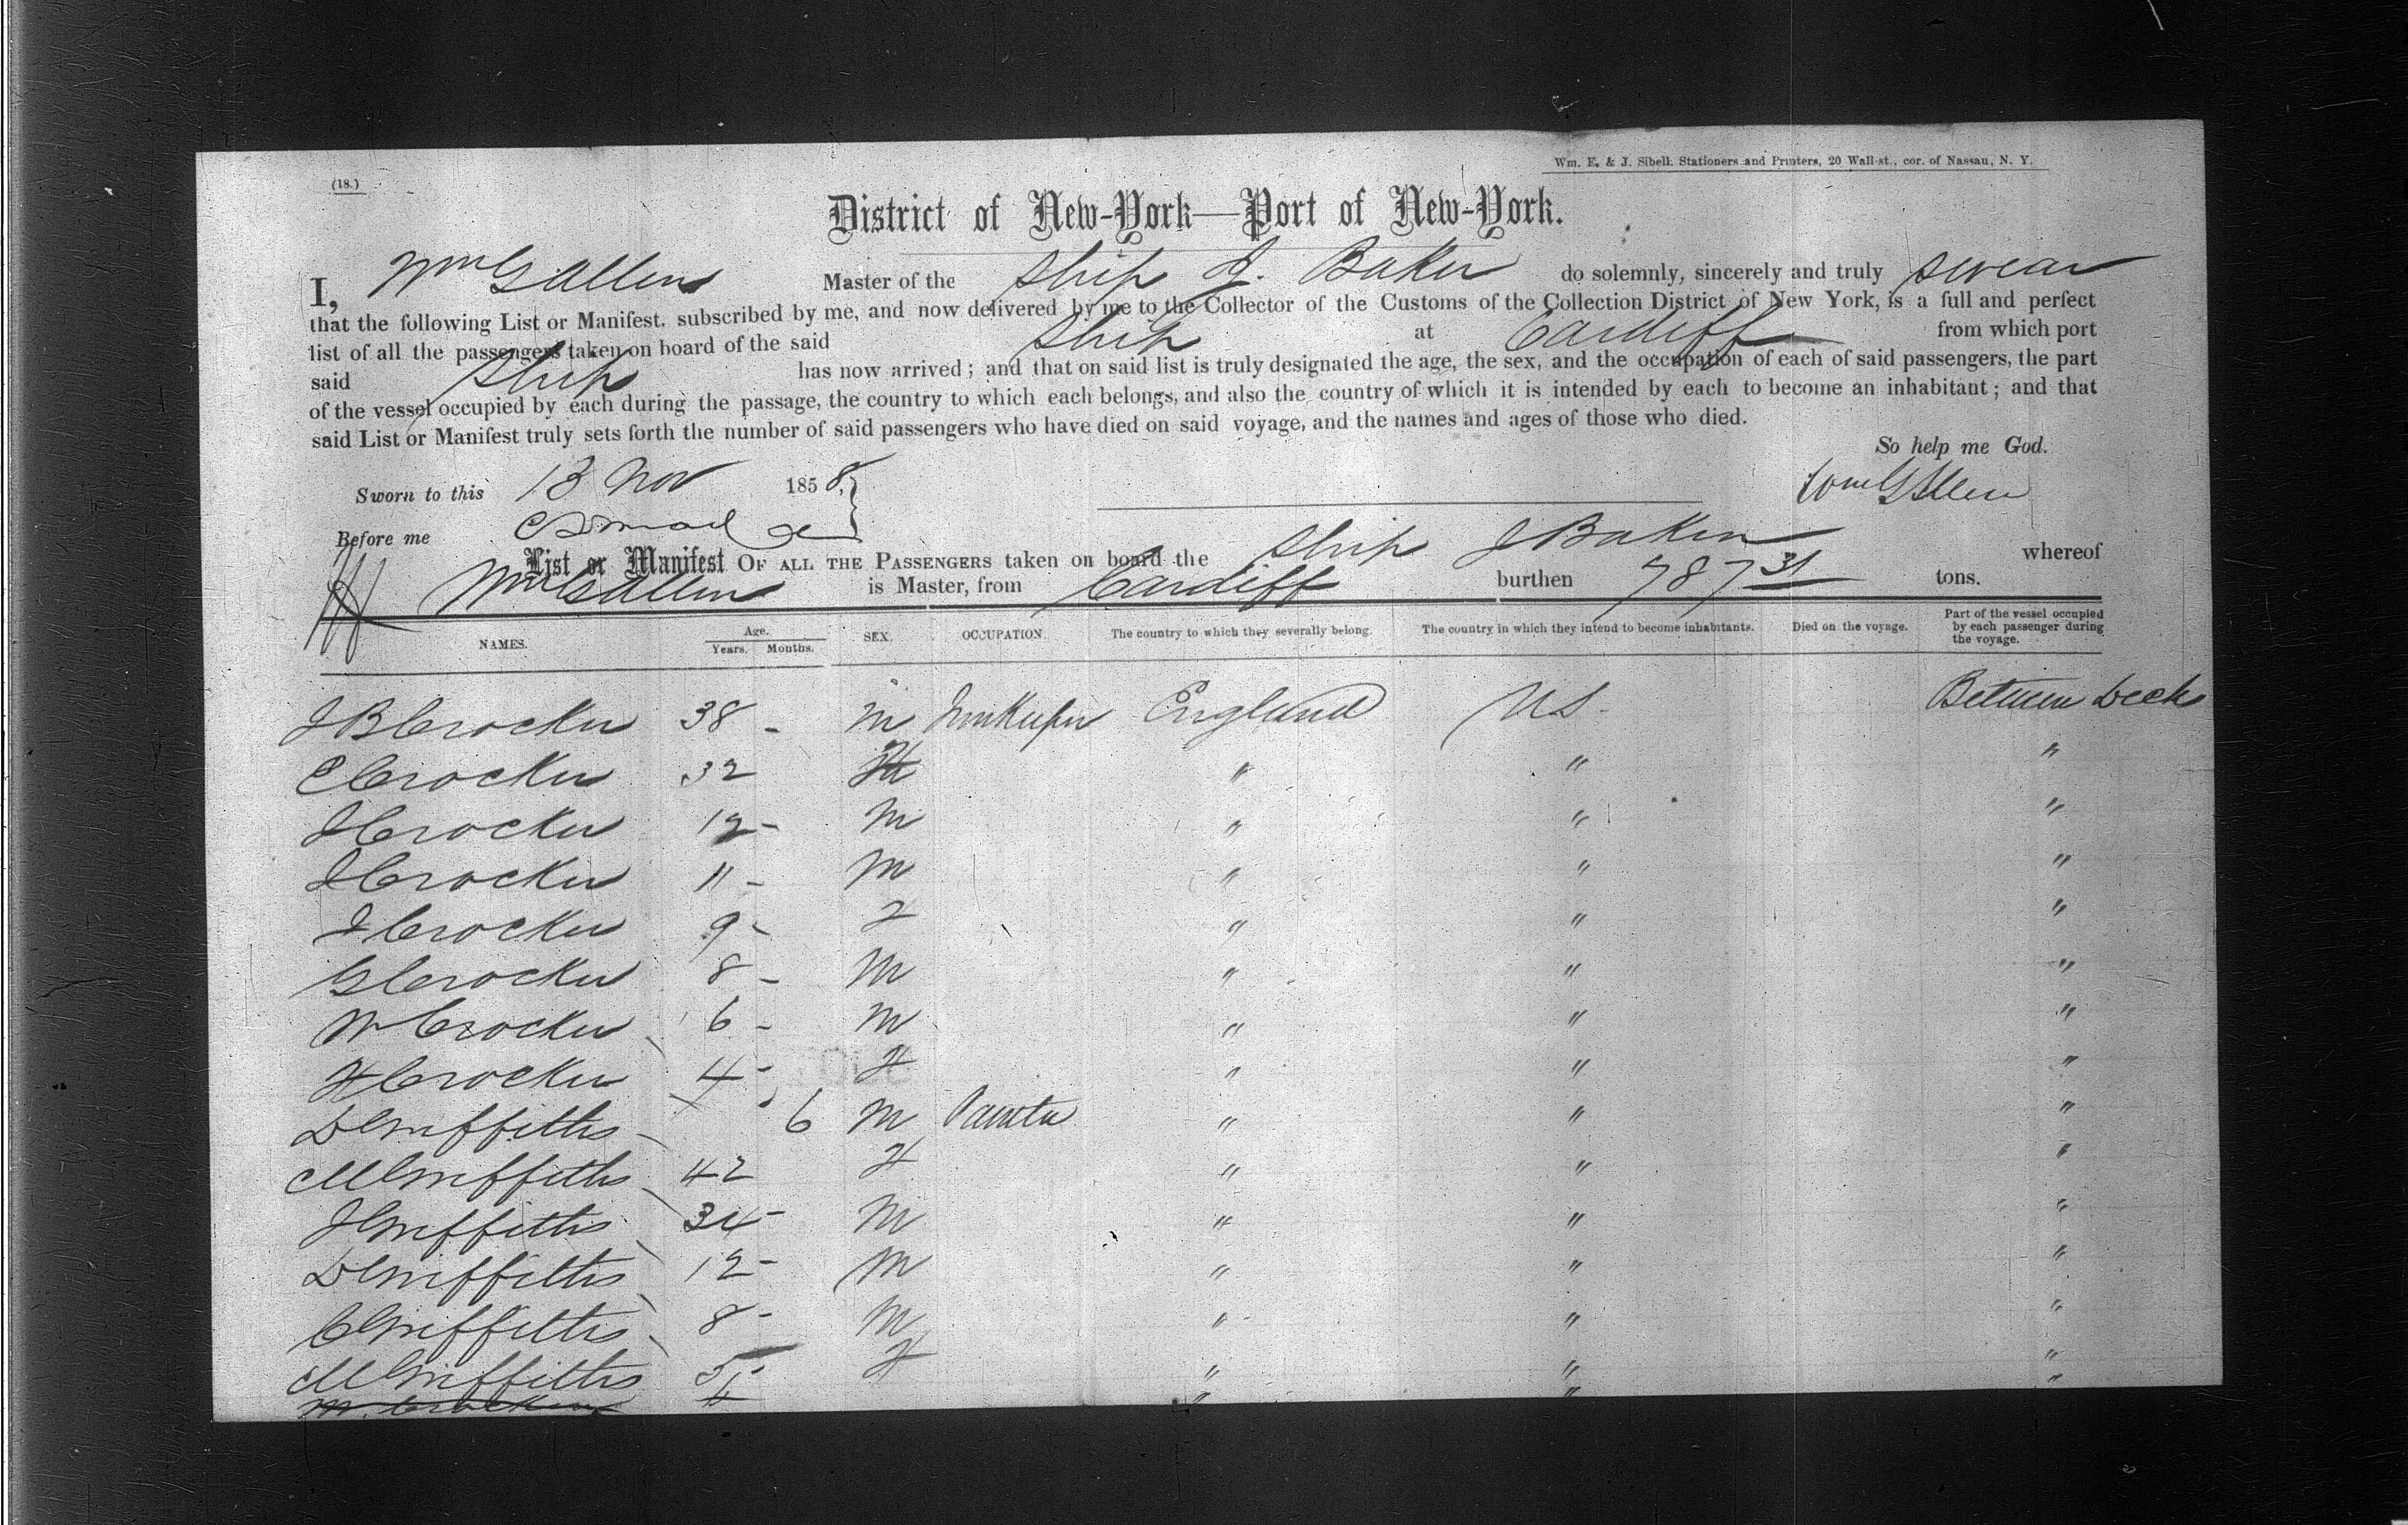 (18.)
Wm. E. & J. Sibell. Stationers and Printers, 20 Wall-st., cor. of Nassau, N. Y.
District of New-York—Port of New-York.
I, Wm G Allen Master of the Ship J. Baker do solemnly, sincerely and truly swear
that the following List or Manifest. subscribed by me, and now delivered by me to the Collector of the Customs of the Collection District of New York, is a full and perfect
list of all the passengers taken on board of the said Ship at Cardiff from which port
said Ship has now arrived; and that on said list is truly designated the age, the sex, and the occupation of each of said passengers, the part
of the vessel occupied by each during the passage, the country to which each belongs, and also the country of which it is intended by each to become an inhabitant; and that
said List or Manifest truly sets forth the number of said passengers who have died on said voyage, and the names and ages of those who died.
So help me God.
Sworn to this 13 Nov 1858, Wm G Allen
Before me
List or Manifest OF ALL THE PASSENGERS taken on board the Ship J Baker whereof
Wm G Allen is Master, from Cardiff burthen 787 31 tons.
NAMES. Age. Years. Months. SEX. OCCUPATION. The country to which they severally belong. The country in which they intend to become inhabitants. Died on the voyage. Part of the vessel occupied by each passenger during the voyage.
J B Crocker 38 - M Innkeeper England US. Between Decks
E Crocker 32 " " "
J Crocker 12 - M " " "
J Crocker 11 - M " " "
J Crocker 9 - F " " "
G Crocker 8 - M " " "
W Crocker 6 - M " " "
H Crocker 4 - F " " "
D Griffiths 6 M Painter " " "
M Griffiths 42 F " " "
J Griffiths 34 - M " " "
D Griffiths 12 - M " " "
C Griffiths 8 - M " " "
M Griffiths 5 - F " " "
M. Crocker 4 " " "